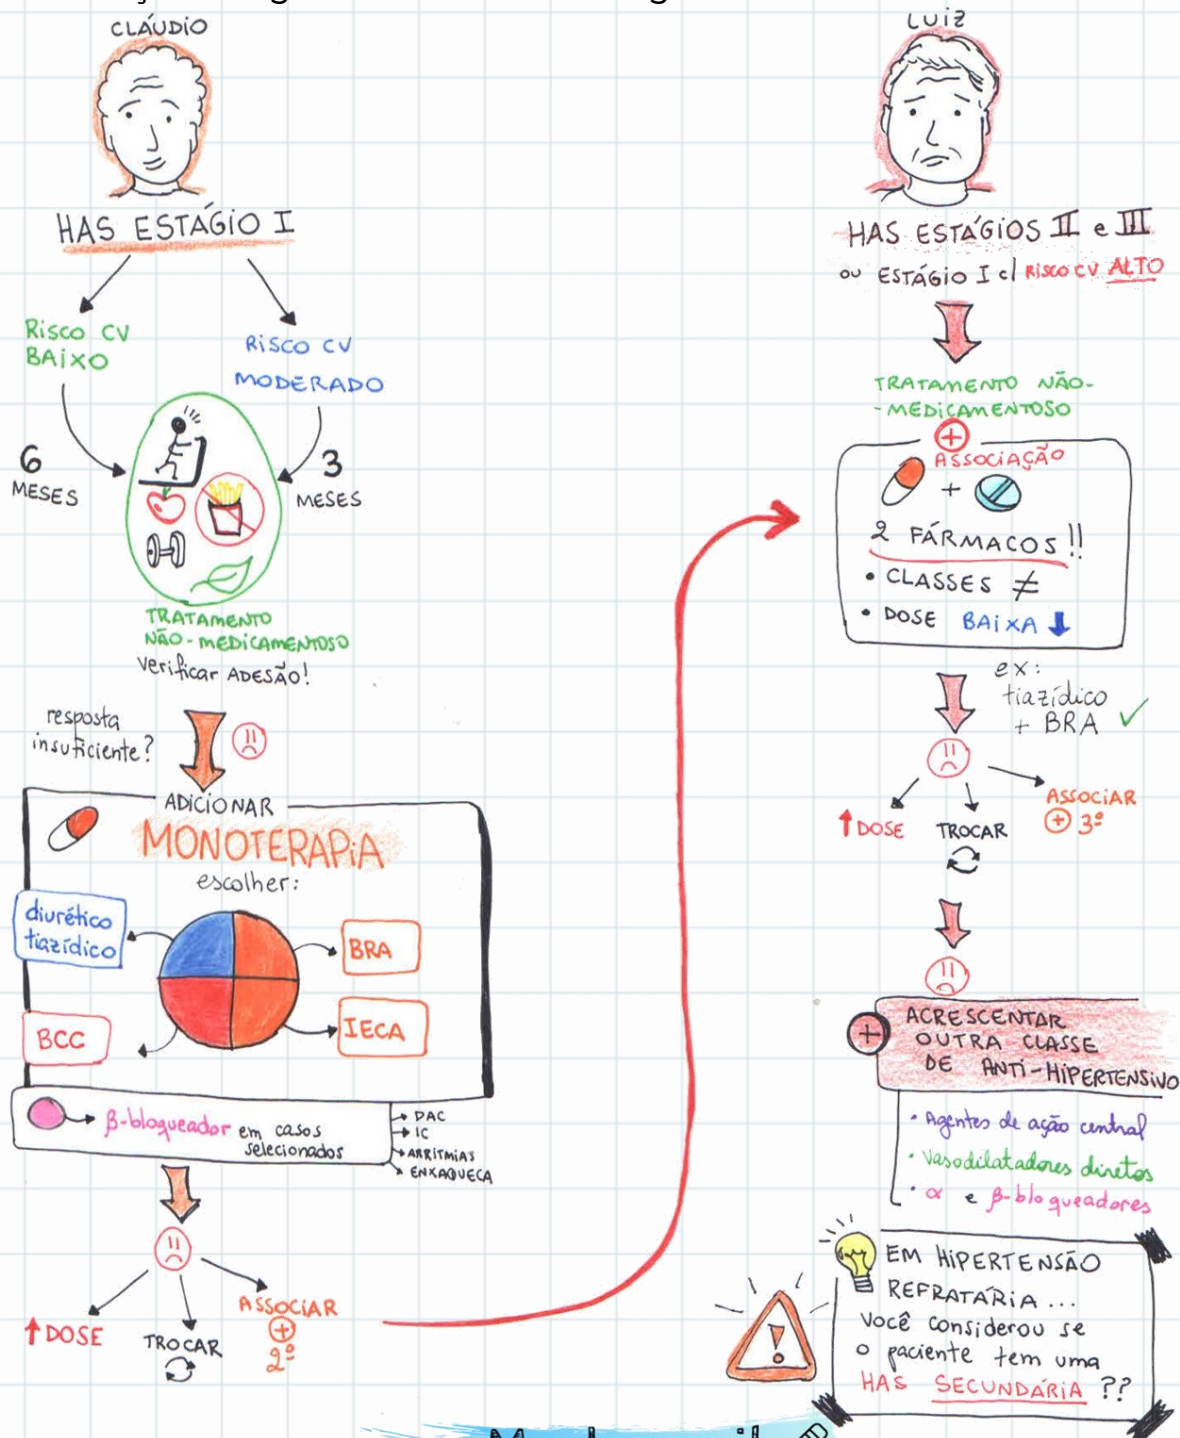 CLÁUDIO
HAS ESTÁGIO I
RISCO CV
BAIXO
RISCO CV
MODERADO
6
MESES
3
MESES
TRATAMENTO
NÃO-MEDICAMENTOSO
Verificar ADESÃO!
resposta
insuficiente?
ADICIONAR
MONOTERAPIA
escolher:
diurético
tiazídico
BRA
BCC
IECA
β-bloqueador em casos
selecionados
DAC
IC
ARRITMIAS
ENXAQUECA
↑ DOSE
TROCAR
ASSOCIAR
+
2º
LUIZ
HAS ESTÁGIOS II e III
ou ESTÁGIO I c/ RISCO CV ALTO
TRATAMENTO NÃO-
-MEDICAMENTOSO
+
ASSOCIAÇÃO
+
2 FÁRMACOS!!
• CLASSES ≠
• DOSE BAIXA ↓
ex:
tiazídico
+ BRA ✓
↑ DOSE
TROCAR
ASSOCIAR
+ 3º
+ ACRESCENTAR
OUTRA CLASSE
DE ANTI-HIPERTENSIVO
• Agentes de ação central
• Vasodilatadores diretos
• α e β-bloqueadores
EM HIPERTENSÃO
REFRATÁRIA...
Você considerou se
o paciente tem uma
HAS SECUNDÁRIA ??
!